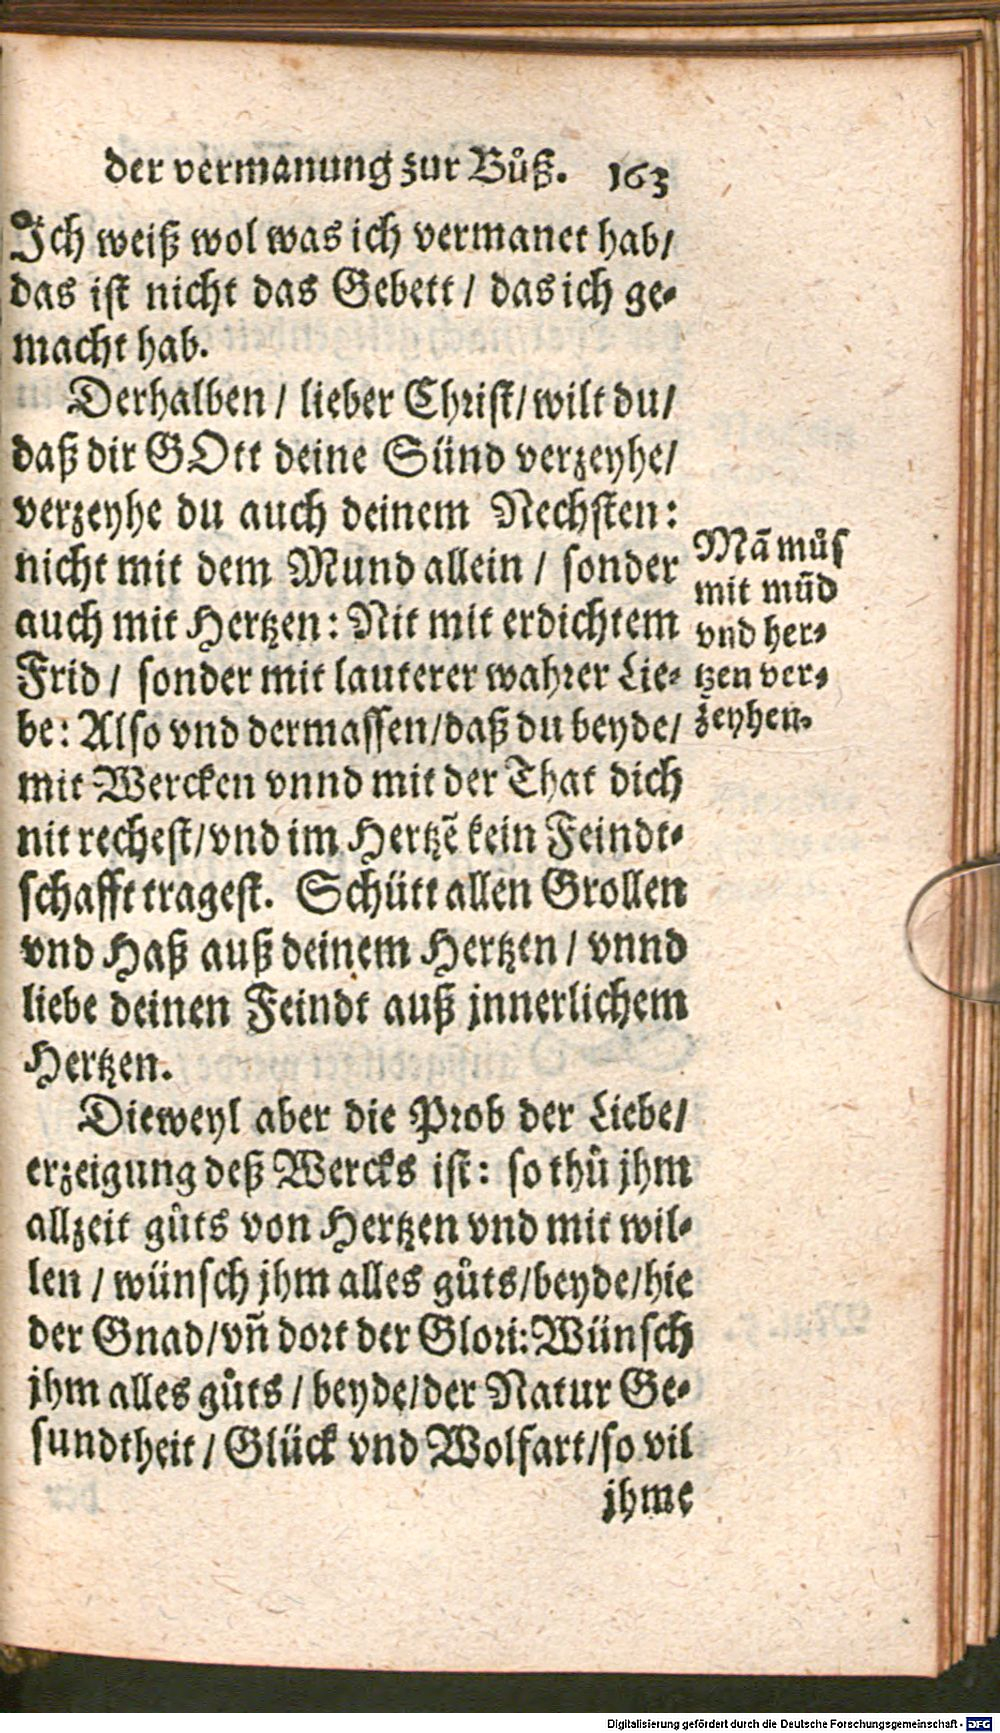 der vermanung zur Bůß. 163
Ich weiß wol was ich vermanet hab/
das ist nicht das Gebett / das ich ge-
macht hab.
Derhalben / lieber Christ/ wilt du/
daß dir GOtt deine Sünd verzeyhe/
verzeyhe du auch deinem Nechsten:
nicht mit dem Mund allein / sonder
auch mit Hertzen: Nit mit erdichtem
Frid / sonder mit lauterer wahrer Lie-
be: Also vnd dermassen/daß du beyde/
mit Wercken vnnd mit der That dich
nit rechest/vnd im Hertzẽ kein Feindt-
schafft tragest. Schütt allen Grollen
vnd Haß auß deinem Hertzen / vnnd
liebe deinen Feindt auß jnnerlichem
Hertzen.
Dieweyl aber die Prob der Liebe/
erzeigung deß Wercks ist: so thů jhm
allzeit gůts von Hertzen vnd mit wil-
len / wünsch jhm alles gůts/beyde/hie
der Gnad/vñ dort der Glori: Wünsch
jhm alles gůts / beyde/der Natur Ge-
sundtheit / Glück vnd Wolfart/so vil
jhme
Mã můs
mit mũd
vnd her-
tzen ver-
zeyhen.
Digitalisierung gefördert durch die Deutsche Forschungsgemeinschaft - DFG